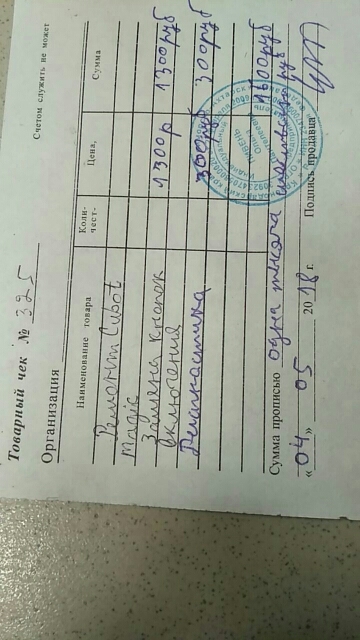 Счетом служить не может
Товарный чек № 325
Организация
Наименование товара Коли-чест- Цена, Сумма
Ремонт Cubot
Magic
Замена кнопок 1300р 1300руб
включения
Диагностика 300руб 300руб
1600руб
Сумма прописью одна тысяча шестьсот руб
«04» 05 2018 г. Подпись продавца